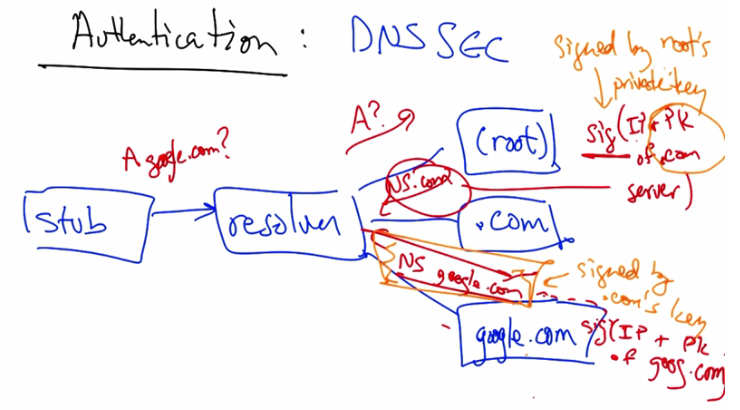 Authentication : DNSSEC
signed by root's
private key
A?
A google.com?
(root)
sig(IP + PK
of .com
server)
NS .com
stub
resolver
.com
NS google.com
signed by
.com's key
google.com
sig(IP + PK
of goog.com)